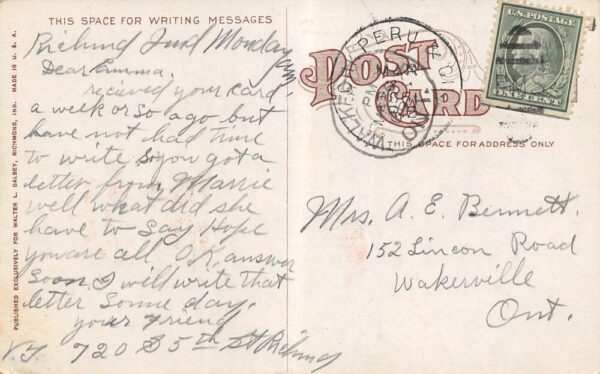 THIS SPACE FOR WRITING MESSAGES
Richmd Ind Monday am,
Dear Emma,
recieved your card
a week or so ago but
have not had time
to write, so you got a
letter from Marrie
well what did she
have to say Hope
you are all O.K, answer
Soon, I will write that
letter Some day,
your Friend
720 S 5th St Richmd
PUBLISHED EXCLUSIVELY FOR WALTER L. DALBEY, RICHMOND, IND. MADE IN U. S. A.
POST CARD
THIS SPACE FOR ADDRESS ONLY
WALKERVILLE
ONT.
PERU
MAR
PM
U.S. POSTAGE
ONE CENT
Mrs. A. E. Bennett.
152 Lincon Road
Wakerville
Ont.